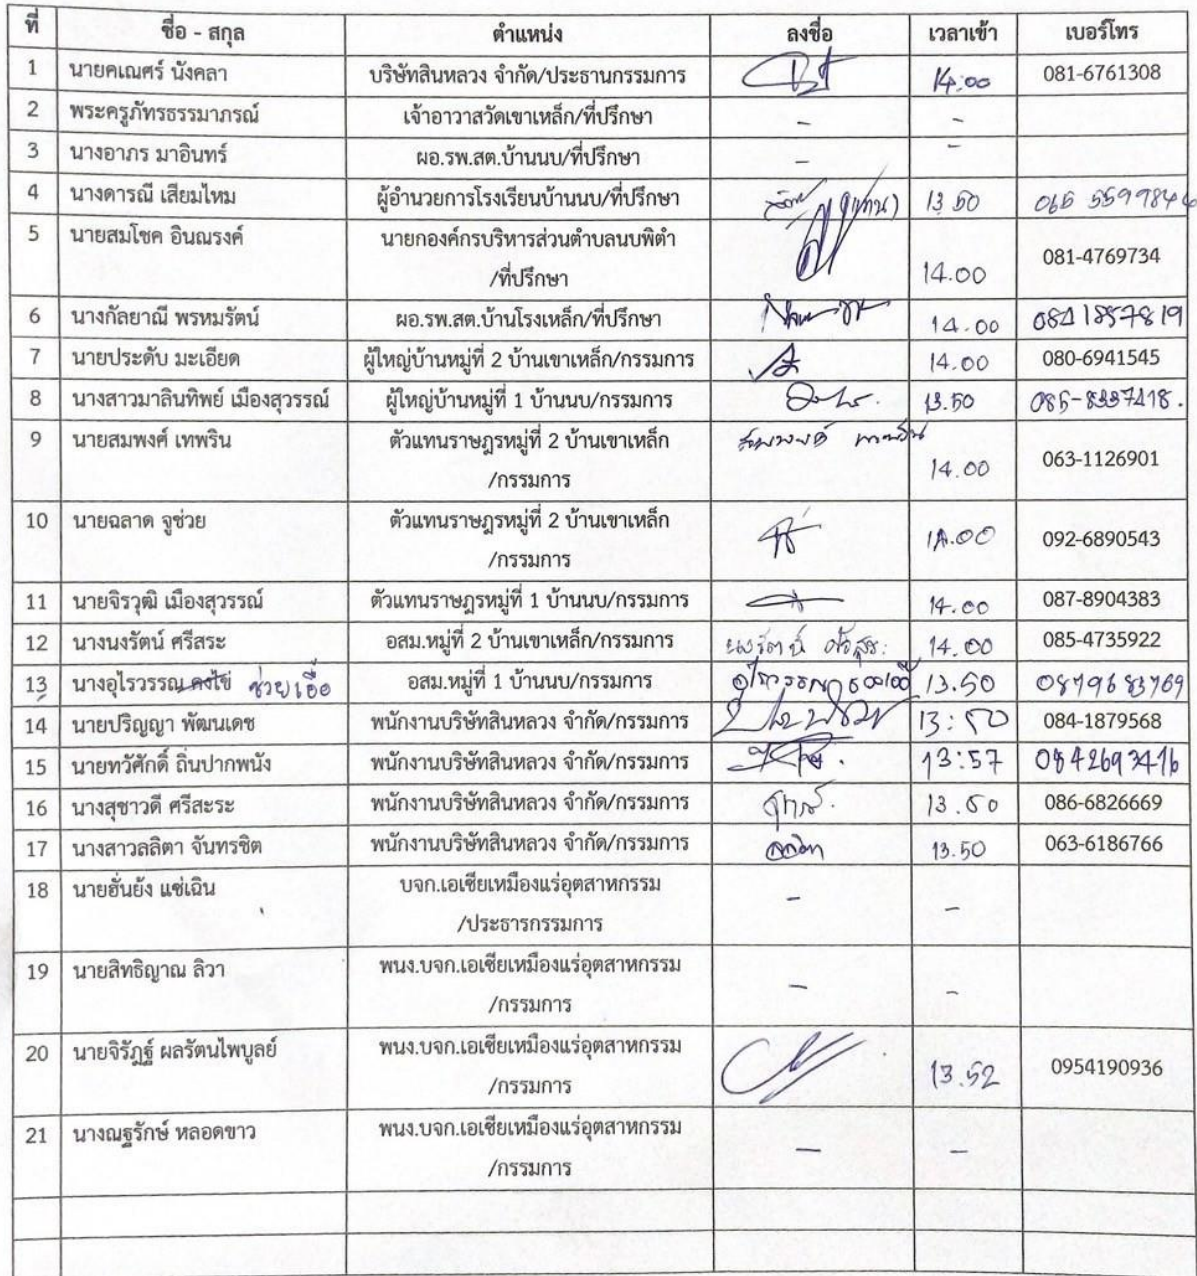 ที่ ชื่อ - สกุล ตำแหน่ง ลงชื่อ เวลาเข้า เบอร์โทร
1 นายคเณศร์ นังคลา บริษัทสินหลวง จำกัด/ประธานกรรมการ 14:00 081-6761308
2 พระครูภัทรธรรมาภรณ์ เจ้าอาวาสวัดเขาเหล็ก/ที่ปรึกษา - -
3 นางอาภร มาอินทร์ ผอ.รพ.สต.บ้านนบ/ที่ปรึกษา - -
4 นางดารณี เสียมไหม ผู้อำนวยการโรงเรียนบ้านนบ/ที่ปรึกษา (แทน) 13 50
5 นายสมโชค อินณรงค์ นายกองค์กรบริหารส่วนตำบลนบพิตำ
/ที่ปรึกษา 14.00 081-4769734
6 นางกัลยาณี พรหมรัตน์ ผอ.รพ.สต.บ้านโรงเหล็ก/ที่ปรึกษา 14.00 0841857819
7 นายประดับ มะเอียด ผู้ใหญ่บ้านหมู่ที่ 2 บ้านเขาเหล็ก/กรรมการ 14.00 080-6941545
8 นางสาวมาลินทิพย์ เมืองสุวรรณ์ ผู้ใหญ่บ้านหมู่ที่ 1 บ้านนบ/กรรมการ 13.50
9 นายสมพงศ์ เทพริน ตัวแทนราษฎรหมู่ที่ 2 บ้านเขาเหล็ก
/กรรมการ 14.00 063-1126901
10 นายฉลาด จูช่วย ตัวแทนราษฎรหมู่ที่ 2 บ้านเขาเหล็ก
/กรรมการ 14.00 092-6890543
11 นายจิรวุฒิ เมืองสุวรรณ์ ตัวแทนราษฎรหมู่ที่ 1 บ้านนบ/กรรมการ 14.00 087-8904383
12 นางนงรัตน์ ศรีสระ อสม.หมู่ที่ 2 บ้านเขาเหล็ก/กรรมการ 14.00 085-4735922
13 นางอุไรวรรณ คงไข่ ช่วยเอื้อ อสม.หมู่ที่ 1 บ้านนบ/กรรมการ 13.50 0879683769
14 นายปริญญา พัฒนเดช พนักงานบริษัทสินหลวง จำกัด/กรรมการ 13:50 084-1879568
15 นายทวัศักดิ์ ถิ่นปากพนัง พนักงานบริษัทสินหลวง จำกัด/กรรมการ 13:57 0842693416
16 นางสุชาวดี ศรีสะระ พนักงานบริษัทสินหลวง จำกัด/กรรมการ 13.50 086-6826669
17 นางสาวลลิตา จันทรชิต พนักงานบริษัทสินหลวง จำกัด/กรรมการ ลลิตา 13.50 063-6186766
18 นายฮั่นย้ง แซ่เฉิน บจก.เอเชียเหมืองแร่อุตสาหกรรม
/ประธารกรรมการ - -
19 นายสิทธิญาณ ลิวา พนง.บจก.เอเชียเหมืองแร่อุตสาหกรรม
/กรรมการ - -
20 นายจิรัฎฐ์ ผลรัตนไพบูลย์ พนง.บจก.เอเชียเหมืองแร่อุตสาหกรรม
/กรรมการ 13.52 0954190936
21 นางณฐรักษ์ หลอดขาว พนง.บจก.เอเชียเหมืองแร่อุตสาหกรรม
/กรรมการ - -